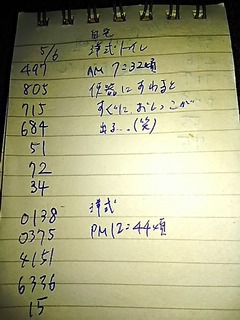 自宅
5/6 洋式トイレ
497 AM 7:32頃
805 便器にすわると
715 すぐにおしっこが
684 出る…(笑)
51
72
34
0138 洋式
0375 PM12:44頃
4151
6336
15